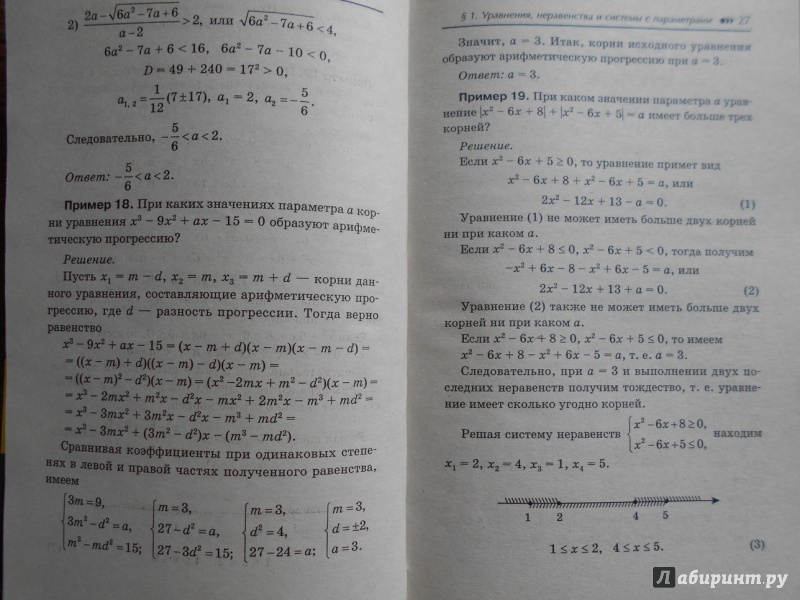 2) (2a−√(6a² − 7a + 6))/(a−2) > 2, или √(6a² − 7a + 6) < 4,
6a² − 7a + 6 < 16, 6a² − 7a − 10 < 0,
D = 49 + 240 = 17² > 0,
a₁, ₂ = 1/12 (7 ± 17), a₁ = 2, a₂ = −5/6.
Следовательно, −5/6 < a < 2.
Ответ: −5/6 < a < 2.
Пример 18. При каких значениях параметра a кор-
ни уравнения x³ − 9x² + ax − 15 = 0 образуют арифме-
тическую прогрессию?
Решение.
Пусть x₁ = m − d, x₂ = m, x₃ = m + d — корни дан-
ного уравнения, составляющие арифметическую про-
грессию, где d — разность прогрессии. Тогда верно
равенство
x³ − 9x² + ax − 15 = (x − m + d)(x − m)(x − m − d) =
= ((x − m) + d)((x − m) − d)(x − m) =
= ((x − m)² − d²)(x − m) = (x² −2mx + m² − d²)(x − m) =
= x³ − 2mx² + m²x − d²x − mx² + 2m²x − m³ + md² =
= x³ − 3mx² + 3m²x − d²x − m³ + md² =
= x³ − 3mx² + (3m² − d²)x − (m³ − md²).
Сравнивая коэффициенты при одинаковых степе-
нях в левой и правой частях полученного равенства,
имеем
{3m = 9, {m = 3, {m = 3, {m = 3,
3m² − d² = a, 27 − d² = a, d² = 4, d = ±2,
m³ − md² = 15; 27 − 3d² = 15; 27 − 24 = a; a = 3.
§ 1. Уравнения, неравенства и системы с параметрами 27
Значит, a = 3. Итак, корни исходного уравнения
образуют арифметическую прогрессию при a = 3.
Ответ: a = 3.
Пример 19. При каком значении параметра a урав-
нение |x² − 6x + 8| + |x² − 6x + 5| = a имеет больше трех
корней?
Решение.
Если x² − 6x + 5 ≥ 0, то уравнение примет вид
x² − 6x + 8 + x² − 6x + 5 = a, или
2x² − 12x + 13 − a = 0. (1)
Уравнение (1) не может иметь больше двух корней
ни при каком a.
Если x² − 6x + 8 ≤ 0, x² − 6x + 5 < 0, тогда получим
−x² + 6x − 8 − x² + 6x − 5 = a, или
2x² − 12x + 13 + a = 0. (2)
Уравнение (2) также не может иметь больше двух
корней ни при каком a.
Если x² − 6x + 8 ≥ 0, x² − 6x + 5 ≤ 0, то имеем
x² − 6x + 8 − x² + 6x − 5 = a, т. е. a = 3.
Следовательно, при a = 3 и выполнении двух по-
следних неравенств получим тождество, т. е. уравне-
ние имеет сколько угодно корней.
Решая систему неравенств {x² − 6x + 8 ≥ 0, x² − 6x + 5 ≤ 0, находим
x₁ = 2, x₂ = 4, x₃ = 1, x₄ = 5.
1 2 4 5
1 ≤ x ≤ 2, 4 ≤ x ≤ 5. (3)
Лабиринт.ру